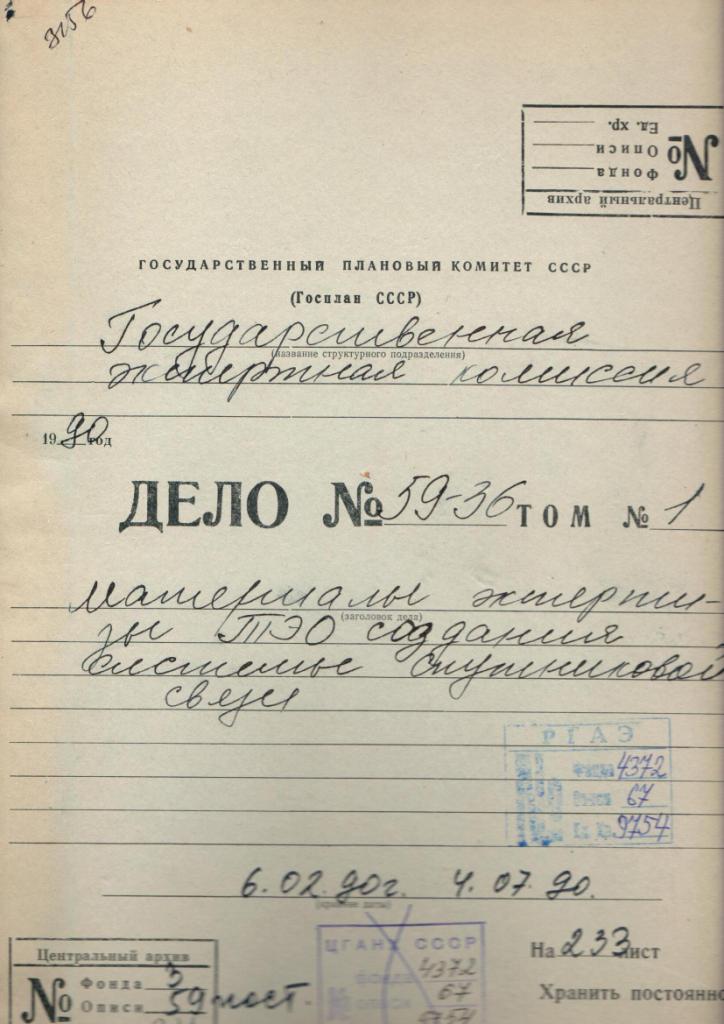 Центральный архив
№
Фонда
Описи
Ед. хр.
ГОСУДАРСТВЕННЫЙ ПЛАНОВЫЙ КОМИТЕТ СССР
(Госплан СССР)
Государственная
(название структурного подразделения)
экспертная комиссия
1990 год
ДЕЛО № 59-36 ТОМ № 1
Материалы эксперти-
(заголовок дела)
зы ТЭО создания
системы спутниковой
связи
РГАЭ
Фонд 4372
Опись 67
Ед. Хр. 9754
6.02.90г. 4.07.90.
(крайние даты)
Центральный архив
№
Фонда 3
Описи 59 пост.
ЦГАНХ СССР
фонда 4372
№ описи 67
9754
На 233 лист
Хранить постоянно